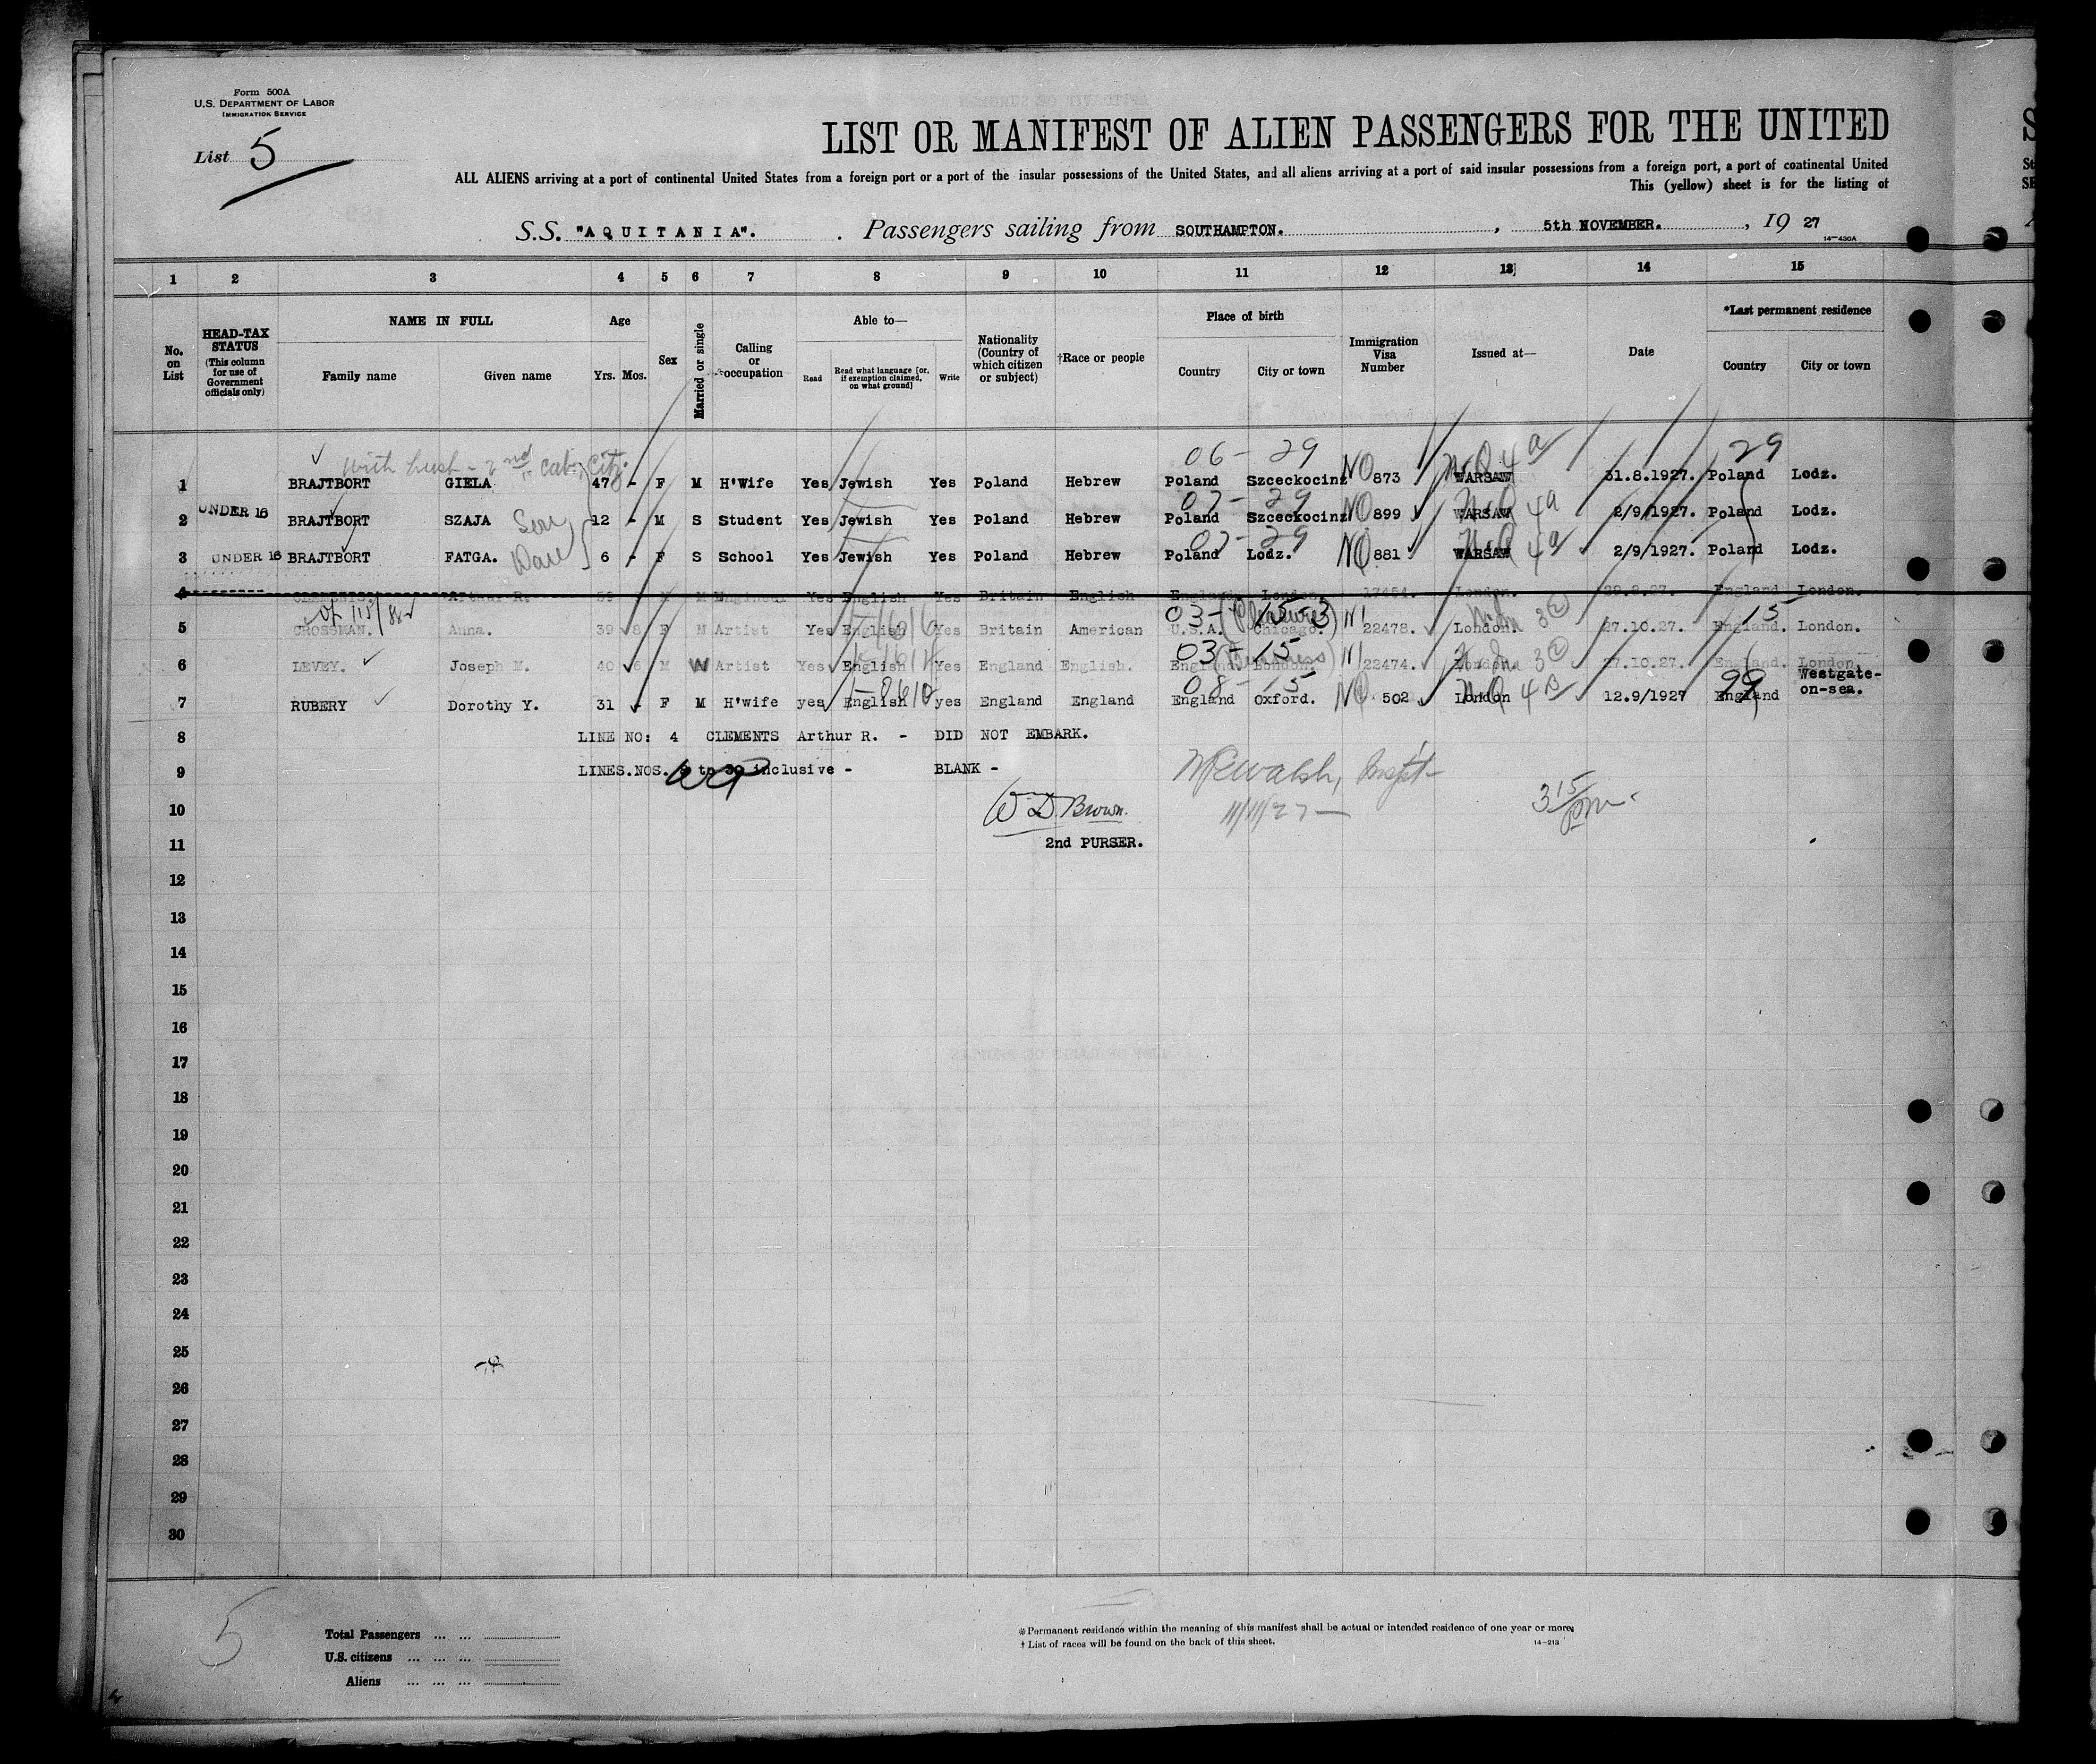 Form 500A
U.S. DEPARTMENT OF LABOR
IMMIGRATION SERVICE
List 5
LIST OR MANIFEST OF ALIEN PASSENGERS FOR THE UNITED
ALL ALIENS arriving at a port of continental United States from a foreign port or a port of the insular possessions of the United States, and all aliens arriving at a port of said insular possessions from a foreign port, a port of continental United
This (yellow) sheet is for the listing of
S.S. "AQUITANIA". Passengers sailing from SOUTHAMPTON. , 5th NOVEMBER. , 19 27
14—430A
1 2 3 4 5 6 7 8 9 10 11 12 13 14 15
No. on List
HEAD-TAX STATUS (This column for use of Government officials only)
NAME IN FULL
Family name Given name
Age
Yrs. Mos.
Sex
Married or single
Calling or occupation
Able to—
Read Read what language [or, if exemption claimed, on what ground] Write
Nationality (Country of which citizen or subject)
†Race or people
Place of birth
Country City or town
Immigration Visa Number
Issued at—
Date
*Last permanent residence
Country City or town
with husb - 2nd cab. Citz.
06 - 29 29
1 BRAJTBORT GIELA 47 - F M H'Wife Yes Jewish Yes Poland Hebrew Poland Szceckocinz NO 873 WARSAW 4a 31.8.1927. Poland Lodz.
07 - 29
2 UNDER 16 BRAJTBORT SZAJA Son 12 - M S Student Yes Jewish Yes Poland Hebrew Poland Szceckocinz NO 899 WARSAW 4a 2/9/1927. Poland Lodz.
07 - 29
3 UNDER 16 BRAJTBORT FATGA. 6 - F S School Yes Jewish Yes Poland Hebrew Poland Lodz. NO 881 WARSAW 4a 2/9/1927. Poland Lodz.
4 Arthur R. M Yes English Yes Britain English England London. London. England London.
03 - 15
5 CROSSMAN. Anna. 39 8 F M Artist Yes English Yes Britain American U.S.A. Chicago. 22478. London. 27.10.27. England. London.
03 - 15
6 LEVEY. Joseph M. 40 6 M W Artist Yes English Yes England English. England London. 22474. London. 27.10.27. England. London.
08 - 15 99
7 RUBERY Dorothy Y. 31 - F M H'wife yes English yes England England England Oxford. 502 London 12.9/1927 England Westgate-on-sea.
8 LINE NO: 4 CLEMENTS Arthur R. - DID NOT EMBARK.
9 LINES.NOS. 8 to 30 inclusive - BLANK -
Walsh, Inspt-
10 W D Brown. 11/11/27 — 3 15 pm.
11 2nd PURSER.
12
13
14
15
16
17
18
19
20
21
22
23
24
25
26
27
28
29
30
5
Total Passengers ... ...
U.S. citizens ... ... ...
Aliens ... ... ...
* Permanent residence within the meaning of this manifest shall be actual or intended residence of one year or more.
† List of races will be found on the back of this sheet.
14—213